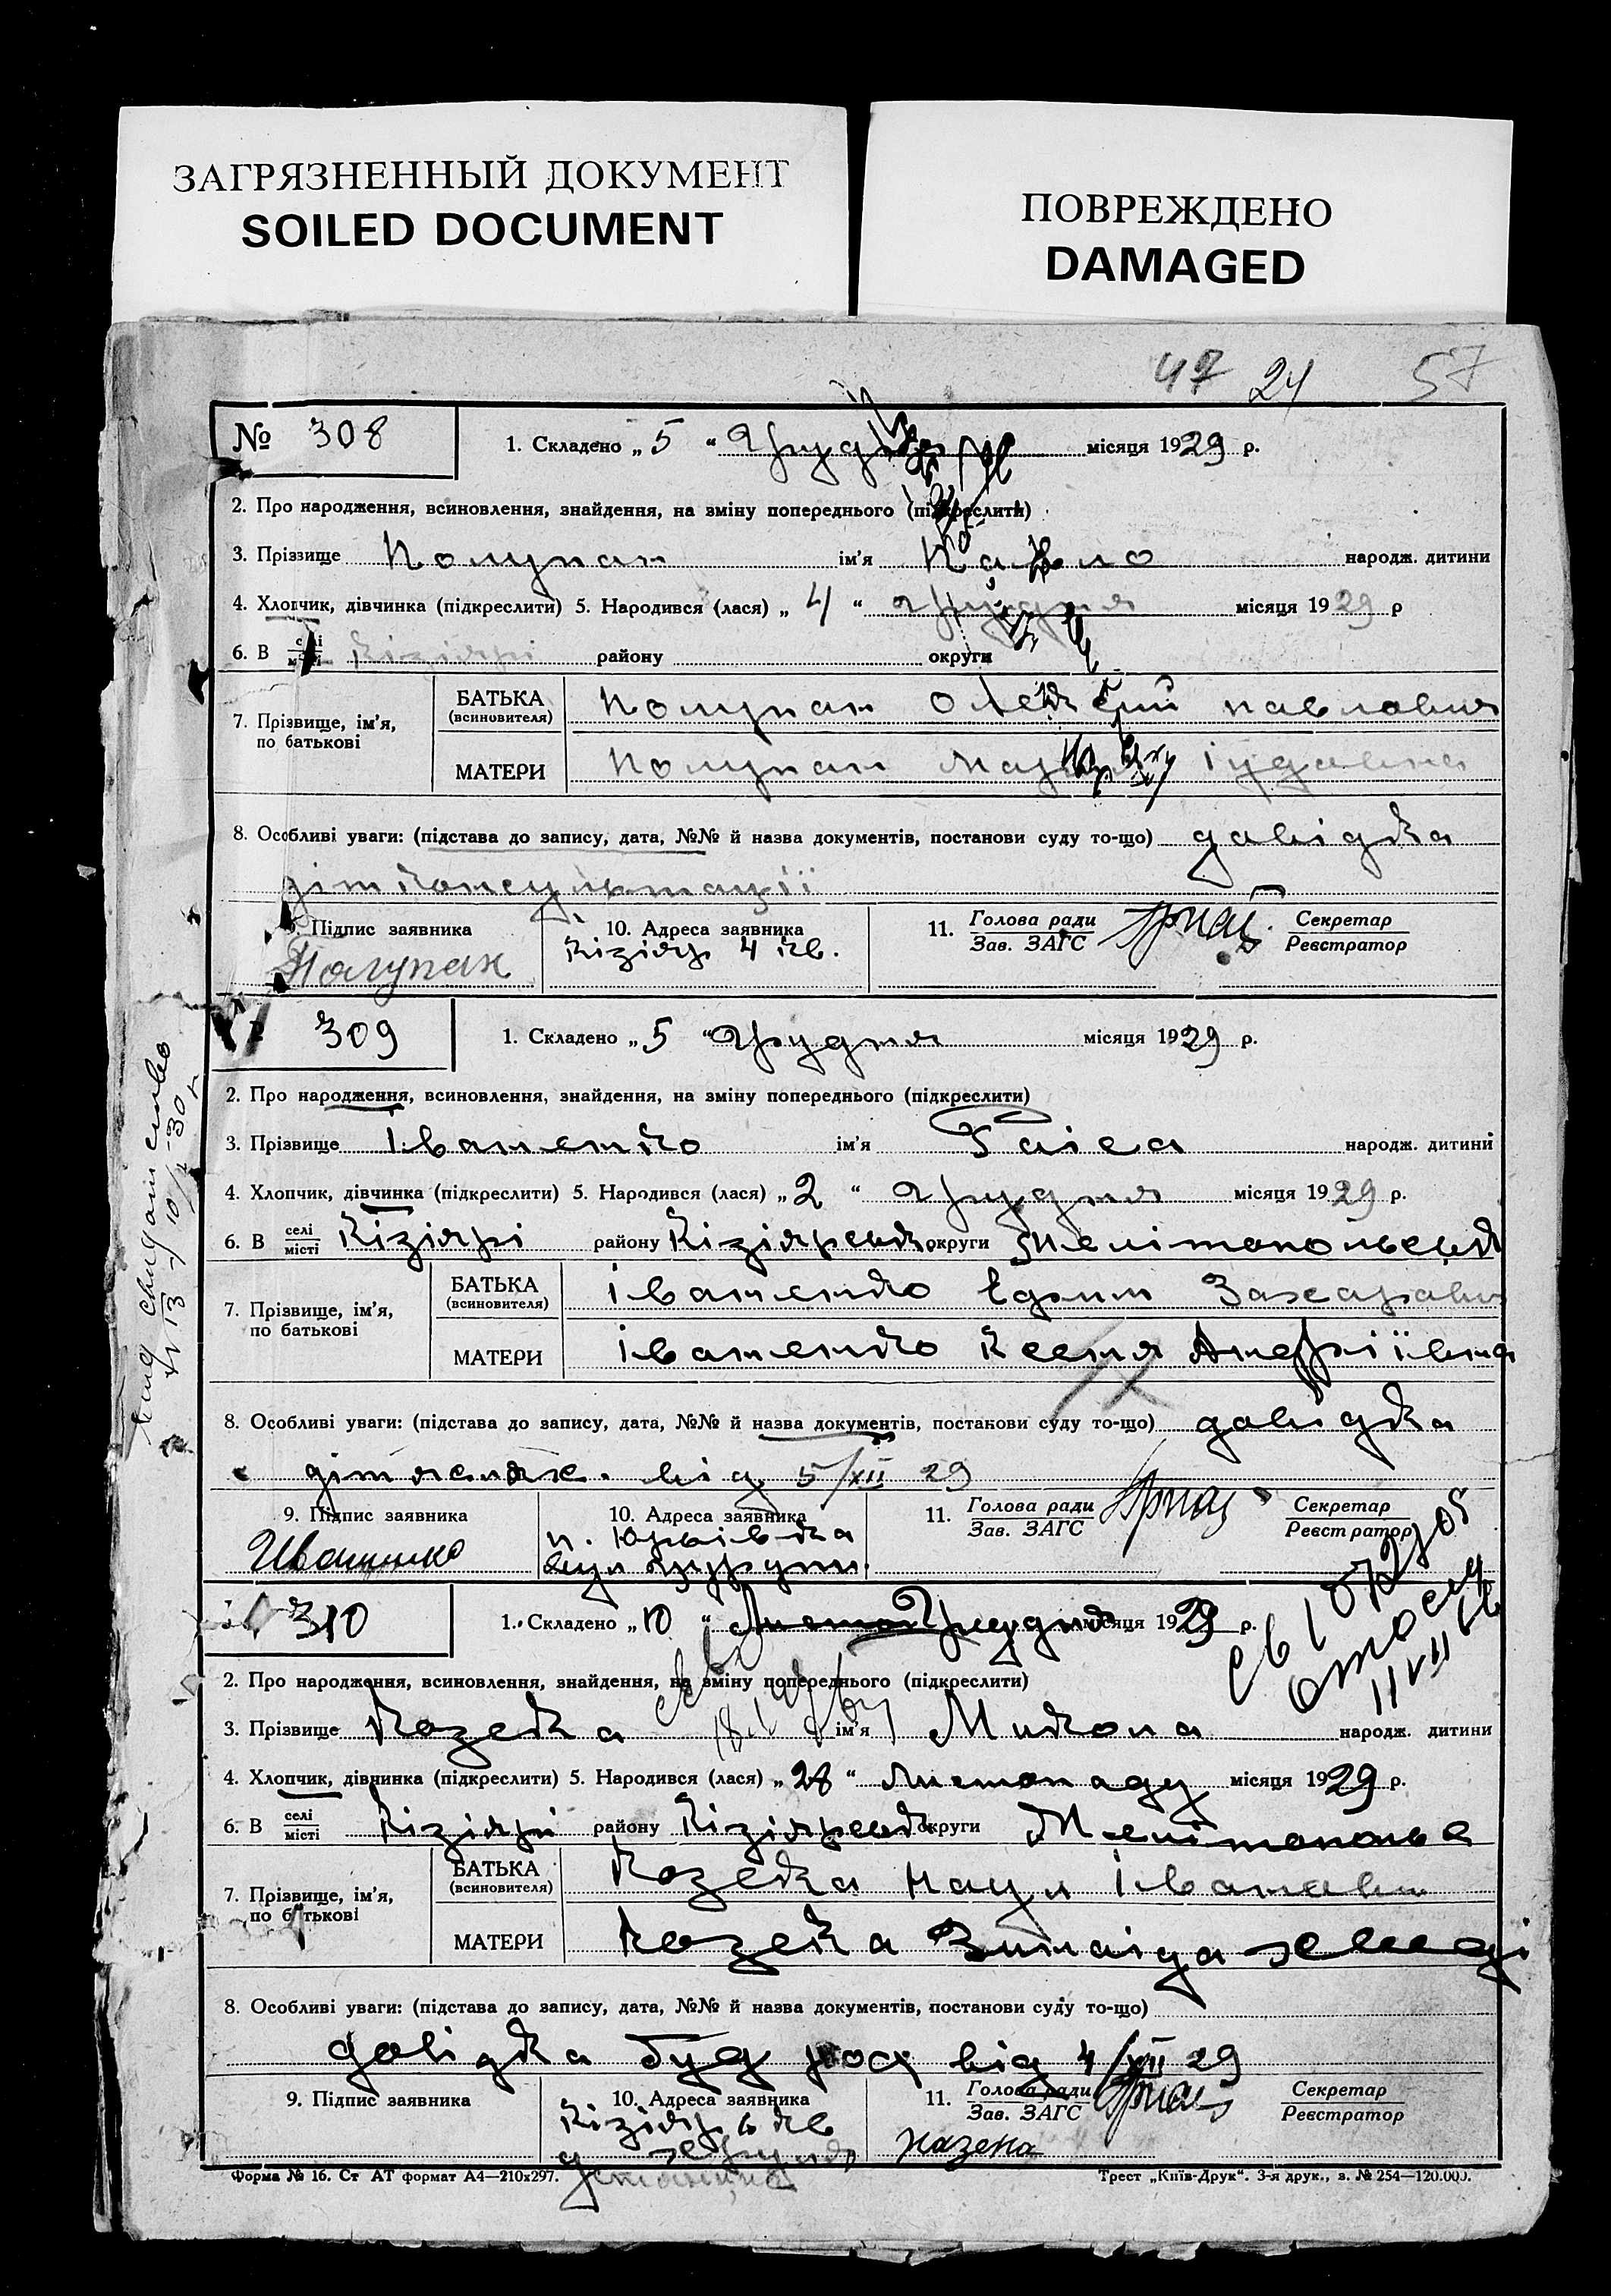 ЗАГРЯЗНЕННЫЙ ДОКУМЕНТ
SOILED DOCUMENT
ПОВРЕЖДЕНО
DAMAGED
47 24 57
№ 308
1. Складено „ 5 “ Грудня місяця 1929 р.
2. Про народження, всиновлення, знайдення, на зміну попереднього (підкреслити)
3. Прізвище Полупан ім’я Павло народж. дитини
4. Хлопчик, дівчинка (підкреслити) 5. Народився (лася) „ 4 “ грудня місяця 1929 р
6. В селі місті Кізіярі району округи
7. Прізвище, ім’я, по батькові
БАТЬКА (всиновителя) Полупан Олексій Павлович
МАТЕРИ Полупан Іудовна
8. Особливі уваги: (підстава до запису, дата, №№ й назва документів, постанови суду то-що) довідка
дітконсультації
9. Підпис заявника
Полупан
10. Адреса заявника
Кізіяр 4 кв.
11. Голова ради Зав. ЗАГС
Секретар Реєстратор
309
1. Складено „ 5 “ Грудня місяця 1929 р.
2. Про народження, всиновлення, знайдення, на зміну попереднього (підкреслити)
3. Прізвище Іваненко ім’я Раіса народж. дитини
4. Хлопчик, дівчинка (підкреслити) 5. Народився (лася) „ 2 “ грудня місяця 1929 р.
6. В селі місті Кізіярі району Кізіярськ. округи Мелітопольськ
7. Прізвище, ім’я, по батькові
БАТЬКА (всиновителя) Іваненко Ефим Захарович
МАТЕРИ Іваненко Ксенія Андріївна
8. Особливі уваги: (підстава до запису, дата, №№ й назва документів, постанови суду то-що) довідка
від 5/XII 29
9. Підпис заявника
10. Адреса заявника
п. Юрівка
11. Голова ради Зав. ЗАГС
Секретар Реєстратор
310
1. Складено „ 10 “ Грудня місяця 1929 р.
2. Про народження, всиновлення, знайдення, на зміну попереднього (підкреслити)
3. Прізвище Козека ім’я Микола народж. дитини
4. Хлопчик, дівчинка (підкреслити) 5. Народився (лася) „ 28 “ Листопаду місяця 1929 р.
6. В селі місті Кізіярі району Кізіярськ округи Мелітопольс
7. Прізвище, ім’я, по батькові
БАТЬКА (всиновителя) Козека Наум Іванович
МАТЕРИ Козека Зинаіда
8. Особливі уваги: (підстава до запису, дата, №№ й назва документів, постанови суду то-що)
довідка буд род від 4/XII 29
9. Підпис заявника
10. Адреса заявника
Кізіяр 6 кв
11. Голова ради Зав. ЗАГС
Секретар Реєстратор
Форма № 16. Ст АТ формат А4—210х297.
Трест „Київ-Друк“. 3-я друк., з. № 254—120.000.